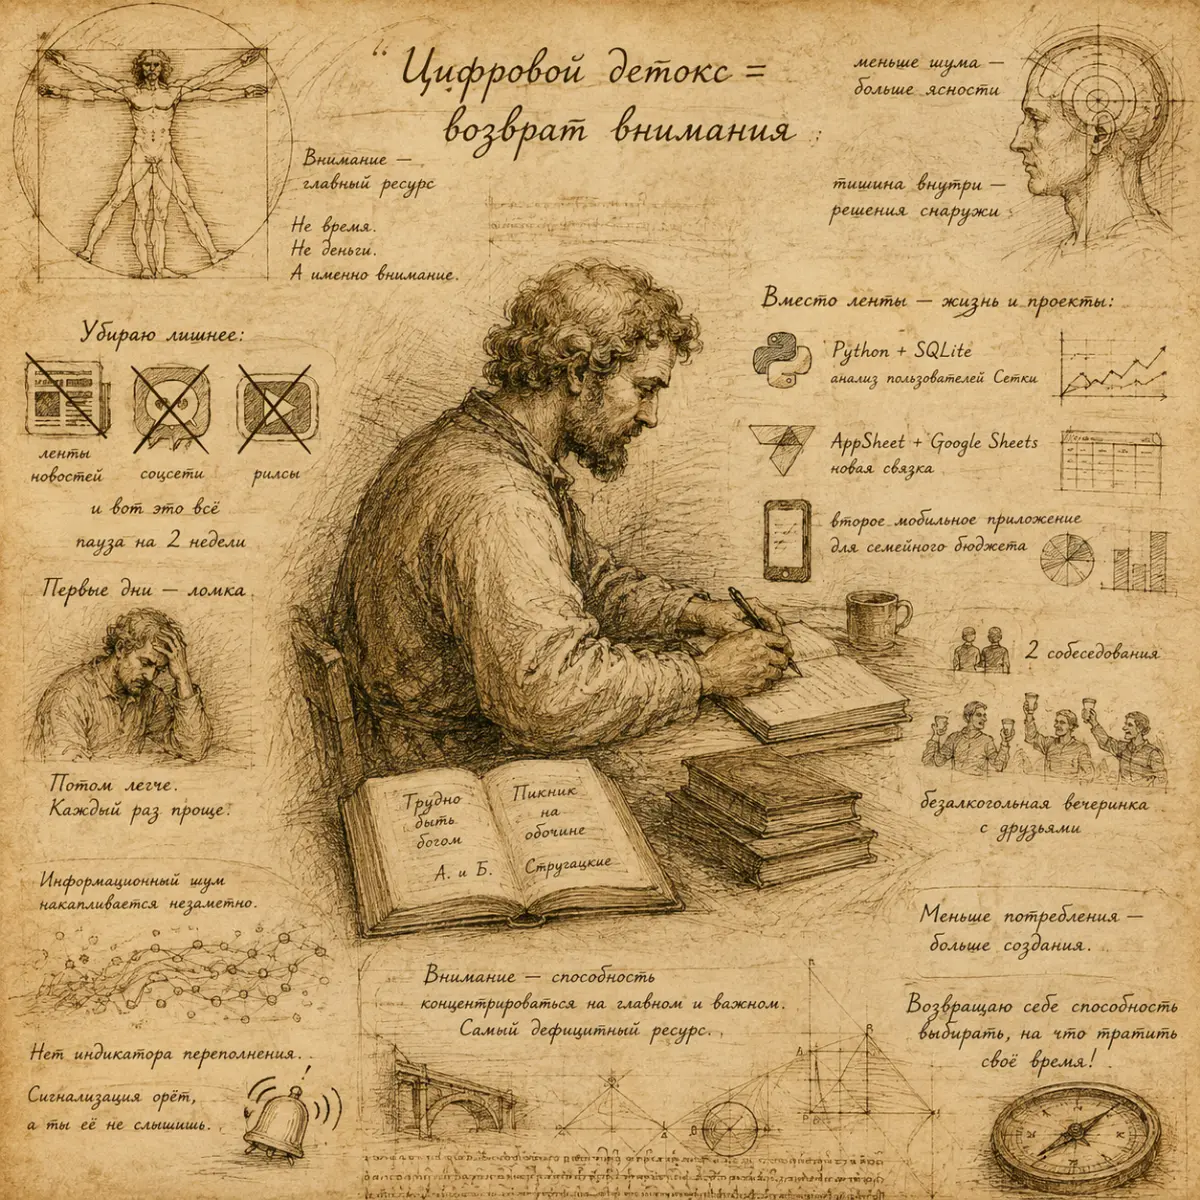 “Цифровой детокс =
возврат внимания
Внимание —
главный ресурс
Не время.
Не деньги.
А именно внимание.
меньше шума —
больше ясности
тишина внутри —
решения снаружи
Убираю лишнее:
ленты
новостей
соцсети
рилсы
и вот это всё
пауза на 2 недели
Первые дни — ломка
Потом легче.
Каждый раз проще.
Информационный шум
накапливается незаметно.
Нет индикатора переполнения.
Сигнализация орёт,
а ты её не слышишь.
!
Вместо ленты — жизнь и проекты:
Python + SQLite
анализ пользователей Сетки
AppSheet + Google Sheets
новая связка
второе мобильное приложение
для семейного бюджета
2 собеседования
безалкогольная вечеринка
с друзьями
Трудно
быть
богом
А. и Б.
Пикник
на
обочине
Стругацкие
Меньше потребления —
больше создания.
Внимание — способность
концентрироваться на главном и важном.
Самый дефицитный ресурс.
Возвращаю себе способность
выбирать, на что тратить
своё время!